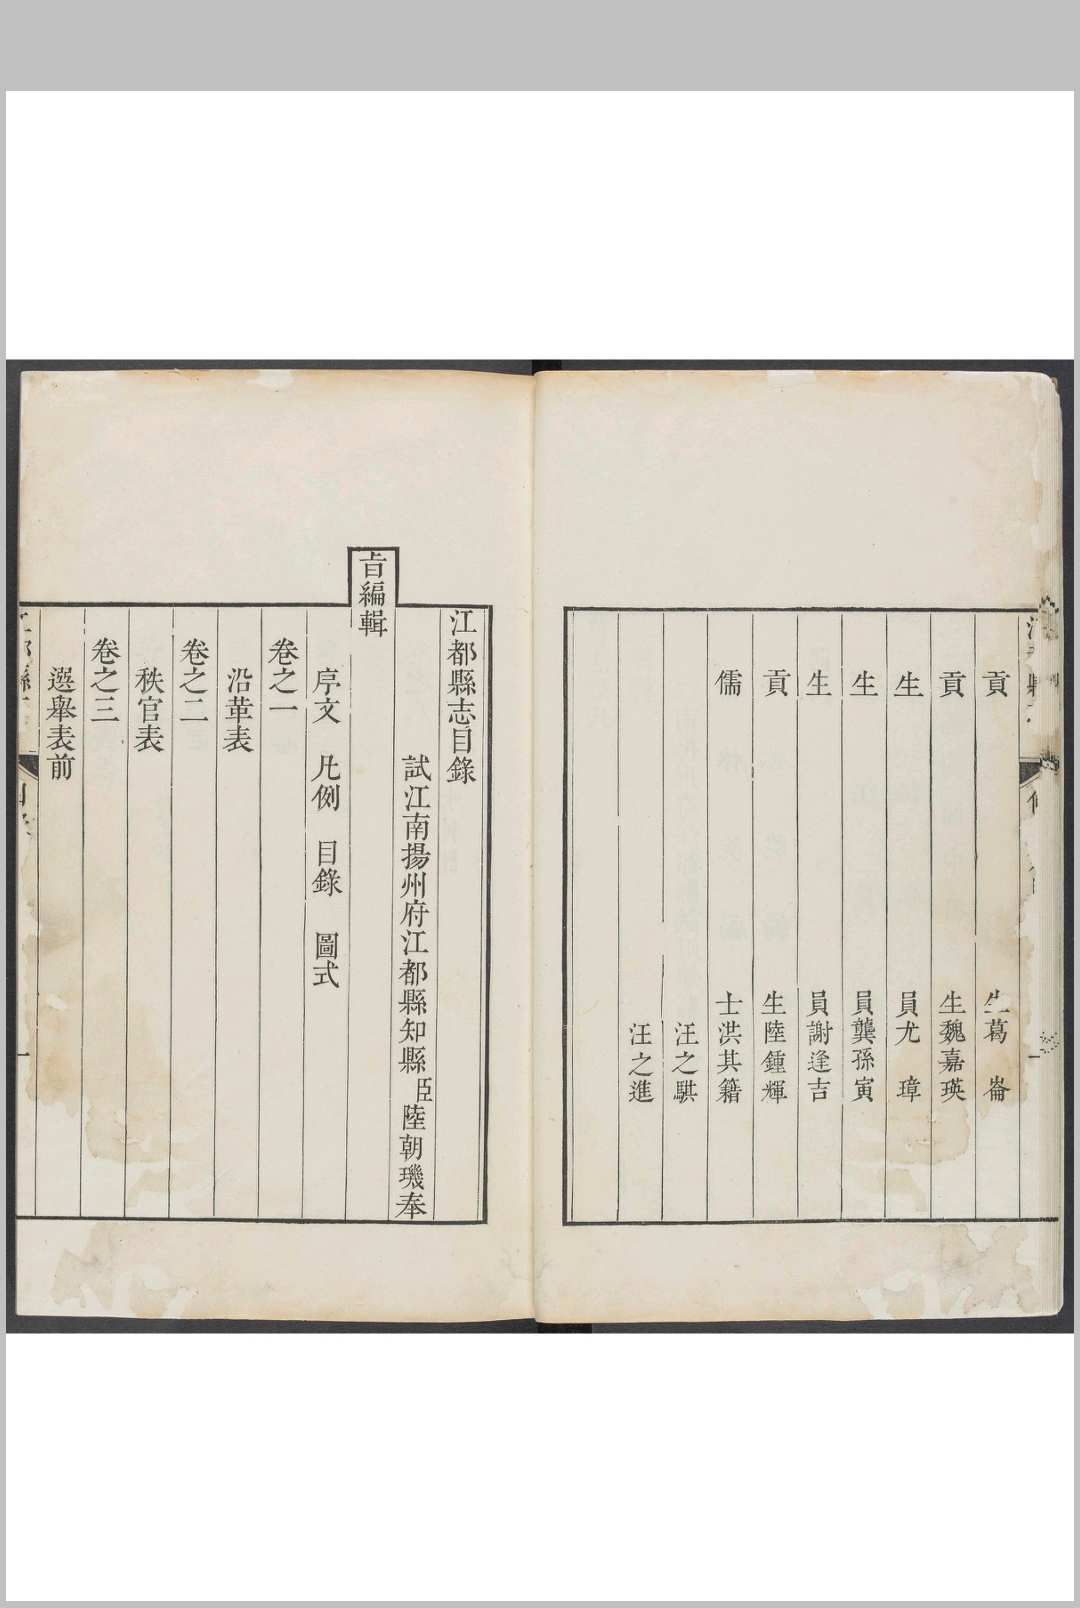 貢　生葛　崙
貢　生魏嘉瑛
生　員尤　璋
生　員龔孫寅
生　員謝逢吉
貢　生陸鍾輝
儒　士洪其籍
汪之騏
汪之進
江都縣志目錄
試江南揚州府江都縣知縣臣陸朝璣奉
旨編輯
序文　凡例　目錄　圖式
卷之一
沿革表
卷之二
秩官表
卷之三
選舉表前